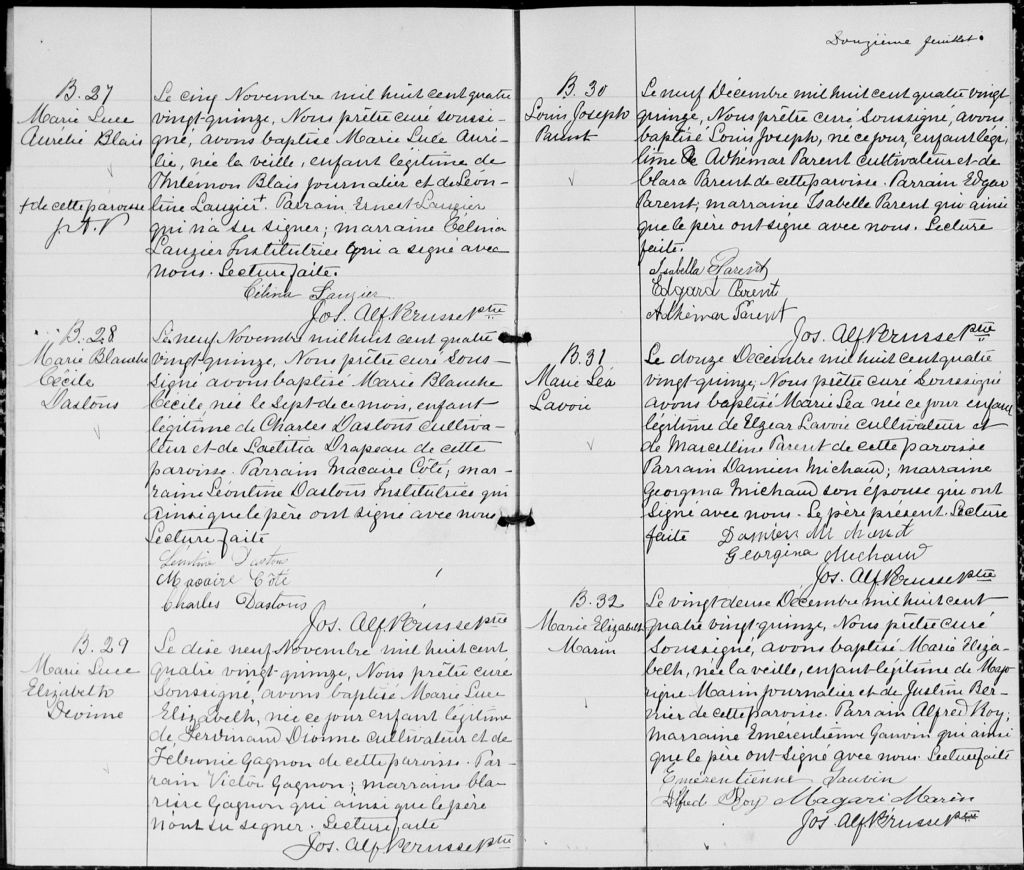 B. 27
Marie Luce
Aurélie Blais
+ de cette paroisse
J. A. P
Le cinq Novembre mil huit cent quatre
vingt-quinze, Nous prêtre curé soussi-
gné, avons baptisé Marie Luce Auré-
lie, née la veille, enfant légitime de
Philémon Blais journalier et de Léon-
tine Lauzier+. Parrain Ernest Lauzier
qui n'a su signer; marraine Célina
Lauzier Institutrice qui a signé avec
nous. Lecture faite.
Célina Lauzier
Jos. Alf Pérusse Ptre
B. 28
Marie Blanche
Cécile
Dastous
Le neuf Novembre mil huit cent quatre
vingt-quinze, Nous prêtre curé Sous-
signé avons baptisé Marie Blanche
Cécile, née le sept de ce mois, enfant
légitime de Charles Dastous cultiva-
teur et de Laetitia Drapeau de cette
paroisse. Parrain Macaire Côté; mar-
raine Léontine Dastous Institutrice qui
ainsi que le père ont signé avec nous
Lecture faite
Léontine Dastous
Macaire Côté
Charles Dastous
Jos. Alf Pérusse Ptre
B. 29
Marie Luce
Elizabeth
Dionne
Le dise neuf Novembre mil huit cent
quatre vingt-quinze, Nous prêtre curé
Soussigné, avons baptisé Marie Luce
Elizabeth, née ce jour enfant légitime
de Ferdinand Dionne cultivateur et de
Fébronie Gagnon de cette paroisse. Par-
rain Victor Gagnon; marraine Cla-
risse Gagnon qui ainsi que le père
n'ont su signer. Lecture faite
Jos. Alf Perusse Ptre
Douzième feuillet.
B. 30
Louis Joseph
Parent
Le neuf Décembre mil huit cent quatre vingt-
quinze, Nous prêtre curé Soussigné, avons
baptisé Louis Joseph, né ce jour, enfant légi-
time de Adhémar Parent cultivateur et de
Clara Parent de cette paroisse. Parrain Edgar
Parent; marraine Isabelle Parent qui ainsi
que le père ont signé avec nous. Lecture
faite.
Isabella Parent
Edgard Parent
Adhémar Parent
Jos. Alf Pérusse Ptre
B. 31
Marie Léa
Lavoie
Le douze Decembre mil huit cent quatre
vingt-quinze, Nous prêtre curé Soussigné
avons baptisé Marie Léa née ce jour enfant
légitime de Elzéar Lavoie cultivateur et
de Marcelline Parent de cette paroisse
Parrain Damien Michaud; marraine
Georgina Michaud son épouse qui ont
signé avec nous. Le père présent. Lecture
faite
Damien Michaud
Georgina Michaud
Jos. Alf Pérusse Ptre
B. 32
Marie Elizabeth
Marin
Le vingt-deuse Décembre mil huit cent
quatre vingt-quinze, Nous prêtre curé
Soussigné, avons baptisé Marie Eliza-
beth, née la veille, enfant légitime de Majo-
rique Marin journalier et de Justine Ber-
nier de cette paroisse. Parrain Alfred Roy;
marraine Emérentienne Gauvin qui ainsi
que le père ont signé avec nous. Lecture faite
Emérentienne Gauvin
Alfred Roy Magari Marin
Jos. Alf Pérusse Ptre